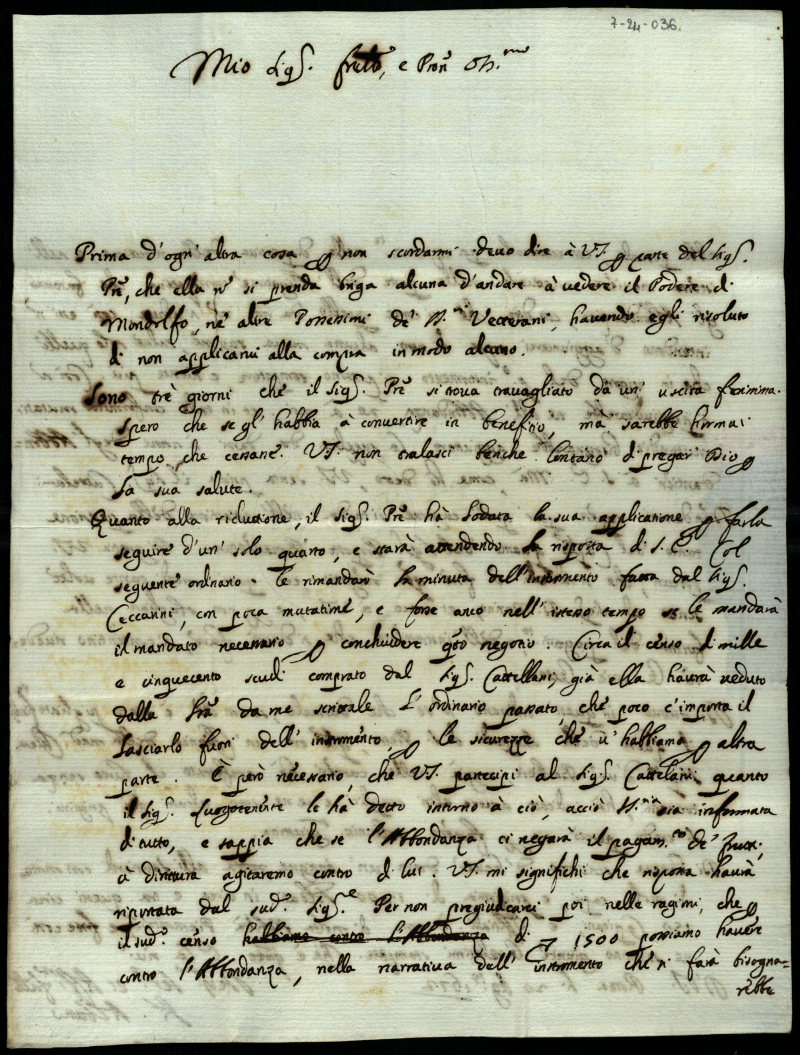 7-24-036.
Mio Sig.r frãtto, e Pron Oss.mo
Prima d'ogn' altra cosa p non scordarmi devo dire à VS. p parte del Sig.r
Prẽ, che ella nõ si prenda briga alcuna d'andare à vedere il Podere di
Mondolfo, nè altre Possessioni de' SS.ri Vetterani, havendo egli risoluto
di non applicarvi alla compra in modo alcuno.
Sono trè giorni che il Sig.r Prẽ si trova travagliato da un' uscita fierissima.
spero che se gl' habbia à convertire in benefitio, mà sarebbe hormai
tempo che cessasse. VS. non tralasci benche lontano di pregar Iddio p
la sua salute.
Quanto alla riduttione, il Sig.r Prẽ hà lodata la sua applicatione p farla
seguire d'un' solo quarto, e starà attendendo la risposta di S. E. Col
seguente ordinario le rimandarò la minuta dell' instromento fatta dal Sig.r
Ceccarini, con poca mutatione, e forse anco nell' istesso tempo se le mandarà
il mandato necessario p conchiudere q.to negotio. Circa il censo di mille
e cinquecento scudi comprato dal Sig.r Castellani, già ella haurà veduto
dalla l.ra da me scrittale l'ordinario passato, che poco c'importa il
lasciarlo fuori dell' instromento, p le sicurezze che v' habbiamo p altra
parte. È però necessario, che VS. partecipi al Sig.r Castelani quanto
il Sig.r Luogotenente le hà detto intorno à ciò, acciò SS.ria sia informata
di tutto, e sappia che se l'Abbondanza ci negarà il pagam.to de' frutti,
à dirittura agitaremo contro di lui. VS. mi significhi che risposta haurà
riportata dal sud.o Sig.re Per non pregiudicarci poi nelle ragioni, che p
il sud.o censo habbiamo contro l'Abbondanza di ∇ 1500 possiamo havere
contro l'Abbondanza, nella narrativa dell' instromento che si farà bisogna=
rebbe